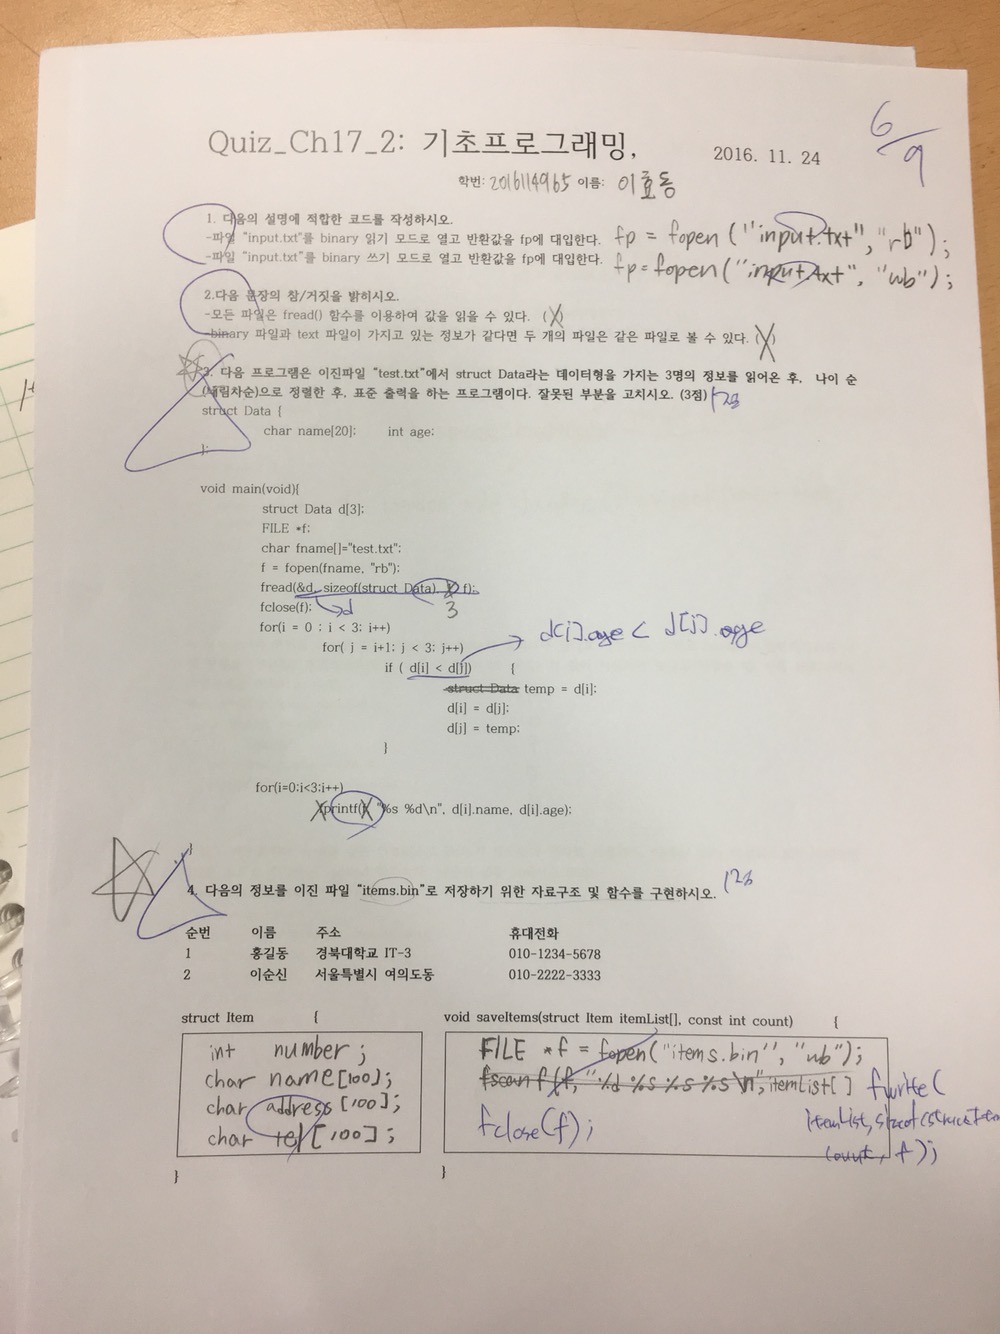 Quiz_Ch17_2: 기초프로그래밍,
2016. 11. 24
6/9
학번: 2016114965 이름: 이효동
1. 다음의 설명에 적합한 코드를 작성하시오.
-파일 "input.txt"를 binary 읽기 모드로 열고 반환값을 fp에 대입한다. fp = fopen ("input.txt", "rb");
-파일 "input.txt"를 binary 쓰기 모드로 열고 반환값을 fp에 대입한다. fp=fopen("input.txt", "wb");
2.다음 문장의 참/거짓을 밝히시오.
-모든 파일은 fread() 함수를 이용하여 값을 읽을 수 있다. (X)
-binary 파일과 text 파일이 가지고 있는 정보가 같다면 두 개의 파일은 같은 파일로 볼 수 있다. (X)
3. 다음 프로그램은 이진파일 "test.txt"에서 struct Data라는 데이터형을 가지는 3명의 정보를 읽어온 후, 나이 순
(내림차순)으로 정렬한 후, 표준 출력을 하는 프로그램이다. 잘못된 부분을 고치시오. (3점) 1점
struct Data {
char name[20]; int age;
};
void main(void){
struct Data d[3];
FILE *f;
char fname[]="test.txt";
f = fopen(fname, "rb");
fread(&d, sizeof(struct Data), f);
fclose(f); d 3
for(i = 0 ; i < 3; i++) d[i].age < d[j].age
for( j = i+1; j < 3; j++)
if ( d[i] < d[j]) {
struct Data temp = d[i];
d[i] = d[j];
d[j] = temp;
}
for(i=0;i<3;i++)
fprintf(f, "%s %d\n", d[i].name, d[i].age);
}
4. 다음의 정보를 이진 파일 "items.bin"로 저장하기 위한 자료구조 및 함수를 구현하시오. 1점
순번 이름 주소 휴대전화
1 홍길동 경북대학교 IT-3 010-1234-5678
2 이순신 서울특별시 여의도동 010-2222-3333
struct Item {
int number ;
char name[100];
char address [100];
char tel [100] ;
}
void saveItems(struct Item itemList[], const int count) {
FILE *f = fopen("items.bin", "wb");
fscanf(f, "%d %s %s %s\n", itemList[] fwrite(
itemList, sizeof(struct Item
fclose(f);
count, f);
}